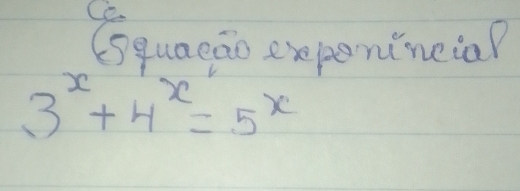 Equação exponíncial
3^x + 4^x = 5^x